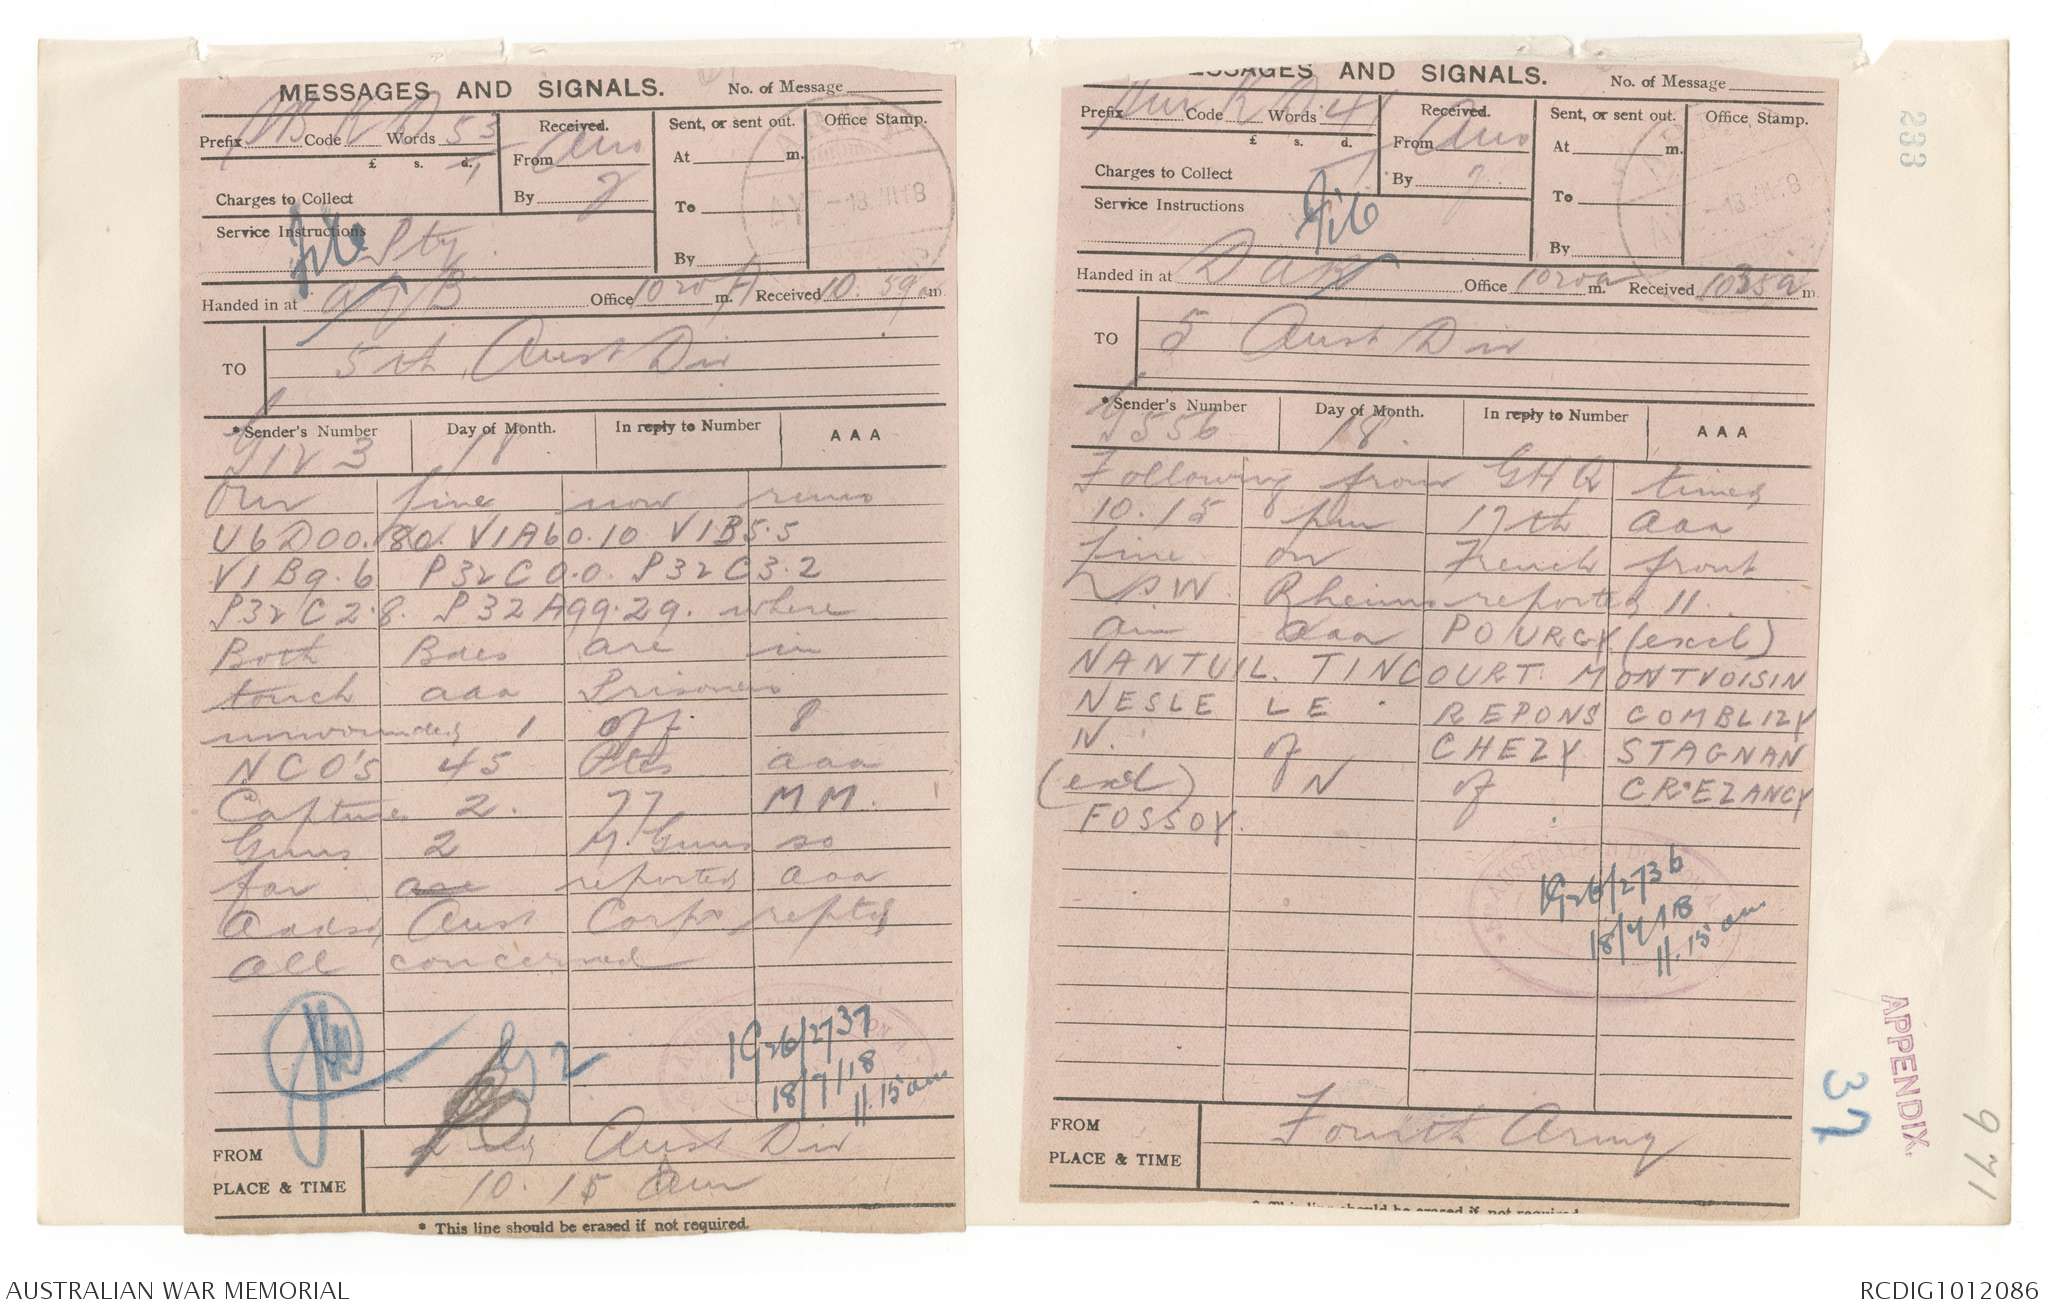 MESSAGES AND SIGNALS.
No. of Message
Prefix Code Words 53
£ s. d.
Received.
From Aus
By
Sent, or sent out.
At m.
To
By
Office Stamp.
18.VII.18
Charges to Collect
Service Instructions Pty
File
Handed in at Office 1020 A m. Received 10.59 a m
TO
5th Aust Div
* Sender's Number
Day of Month.
In reply to Number
AAA
G123 18
Our line now runs
U6D00.80. V1A60.10 V1B5.5
V1B9.6 P32C0.0. P32C3.2
P32C2.8. P32A99.29. where
Both Bdes are in
touch aaa Prisoners
unwounded 1 off 8
NCO'S 45 Ptes aaa
Captures 2. 77 MM.
Guns 2 M. Guns so
far are reported aaa
Addsd Aust Corps reptd
all concerned
G2
IG26/2737
18/7/18
11.15 am
FROM
PLACE & TIME
2nd Aust Div
10.15 am
* This line should be erased if not required.
MESSAGES AND SIGNALS.
No. of Message
Prefix Code Words 41
£ s. d.
Received.
From Aus
By
Sent, or sent out.
At m.
To
By
Office Stamp.
18.VII.18
Charges to Collect
Service Instructions
File
Handed in at Office 1020a m. Received 1035a m
TO
5 Aust Div
* Sender's Number
Day of Month.
In reply to Number
AAA
G556 18.
Following from GHQ timed
10.15 pm 17th aaa
Line on French front
S.W. Rheims reported 11.
am aaa POURGY (excl)
NANTUIL. TINCOURT. MONTVOISIN
NESLE LE REPONS COMBLIZY
N. of CHEZY STAGNAN
(excl) N of CREZANCY
FOSSOY.
IG26/2736
18/7/18
11.15 am
FROM
PLACE & TIME
Fourth Army
* This line should be erased if not required
233
APPENDIX.
37
971
AUSTRALIAN WAR MEMORIAL
RCDIG1012086